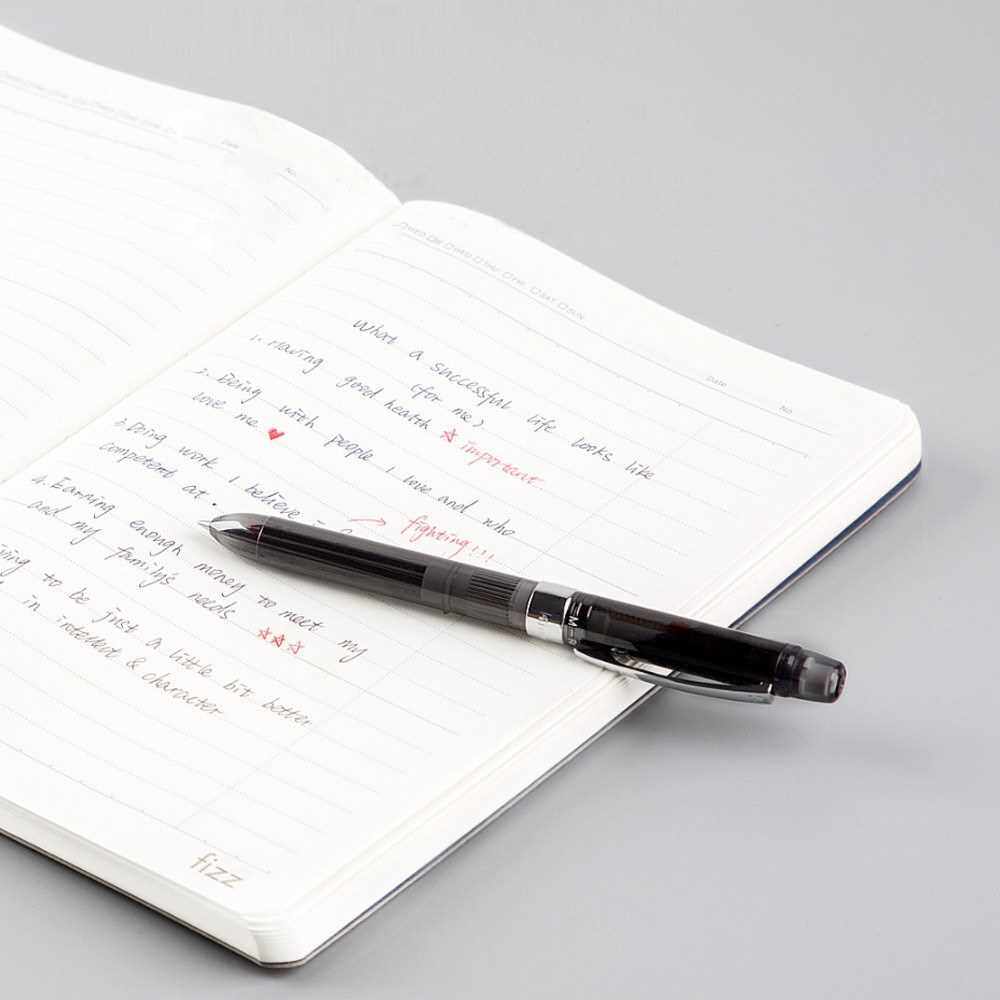 Date
No.
□WED □THU □FRI □SAT □SUN
Date
No.
What a successful life looks like
(for me)
1. Having good health ☆ important
2. Being with people I love and who
love me ♥
3. Doing work I believe in &
competent at.
→ fighting!!!
4. Earning enough money to meet my
and my family's needs ☆☆☆
to be just a little bit better
in intellect & character
fizz